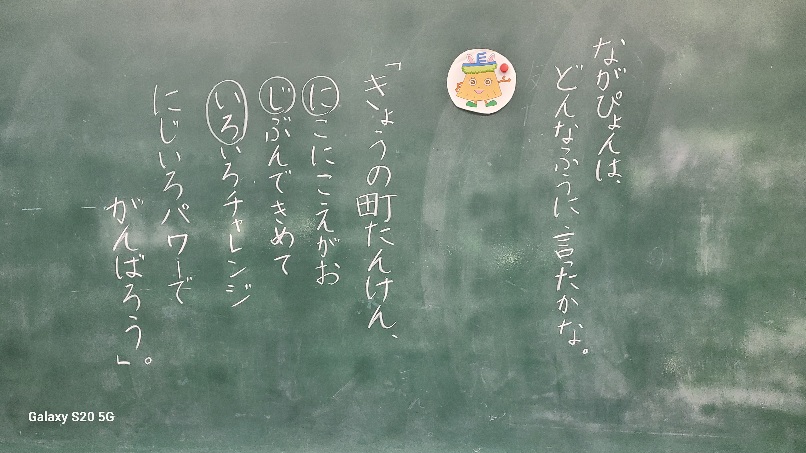 ながぴょんは、
どんなふうに言ったかな。
「きょうの町たんけん、
にこにこえがお
じぶんできめて
いろいろチャレンジ
にじいろパワーで
がんばろう」。
Galaxy S20 5G